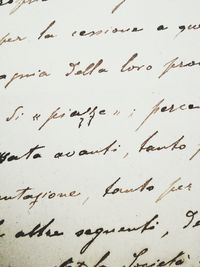 per la cessione a qu
agnia della loro pro
di « piazze » ; perce
ata avanti, tanto
ntazione, tanto per
altre seguenti, de